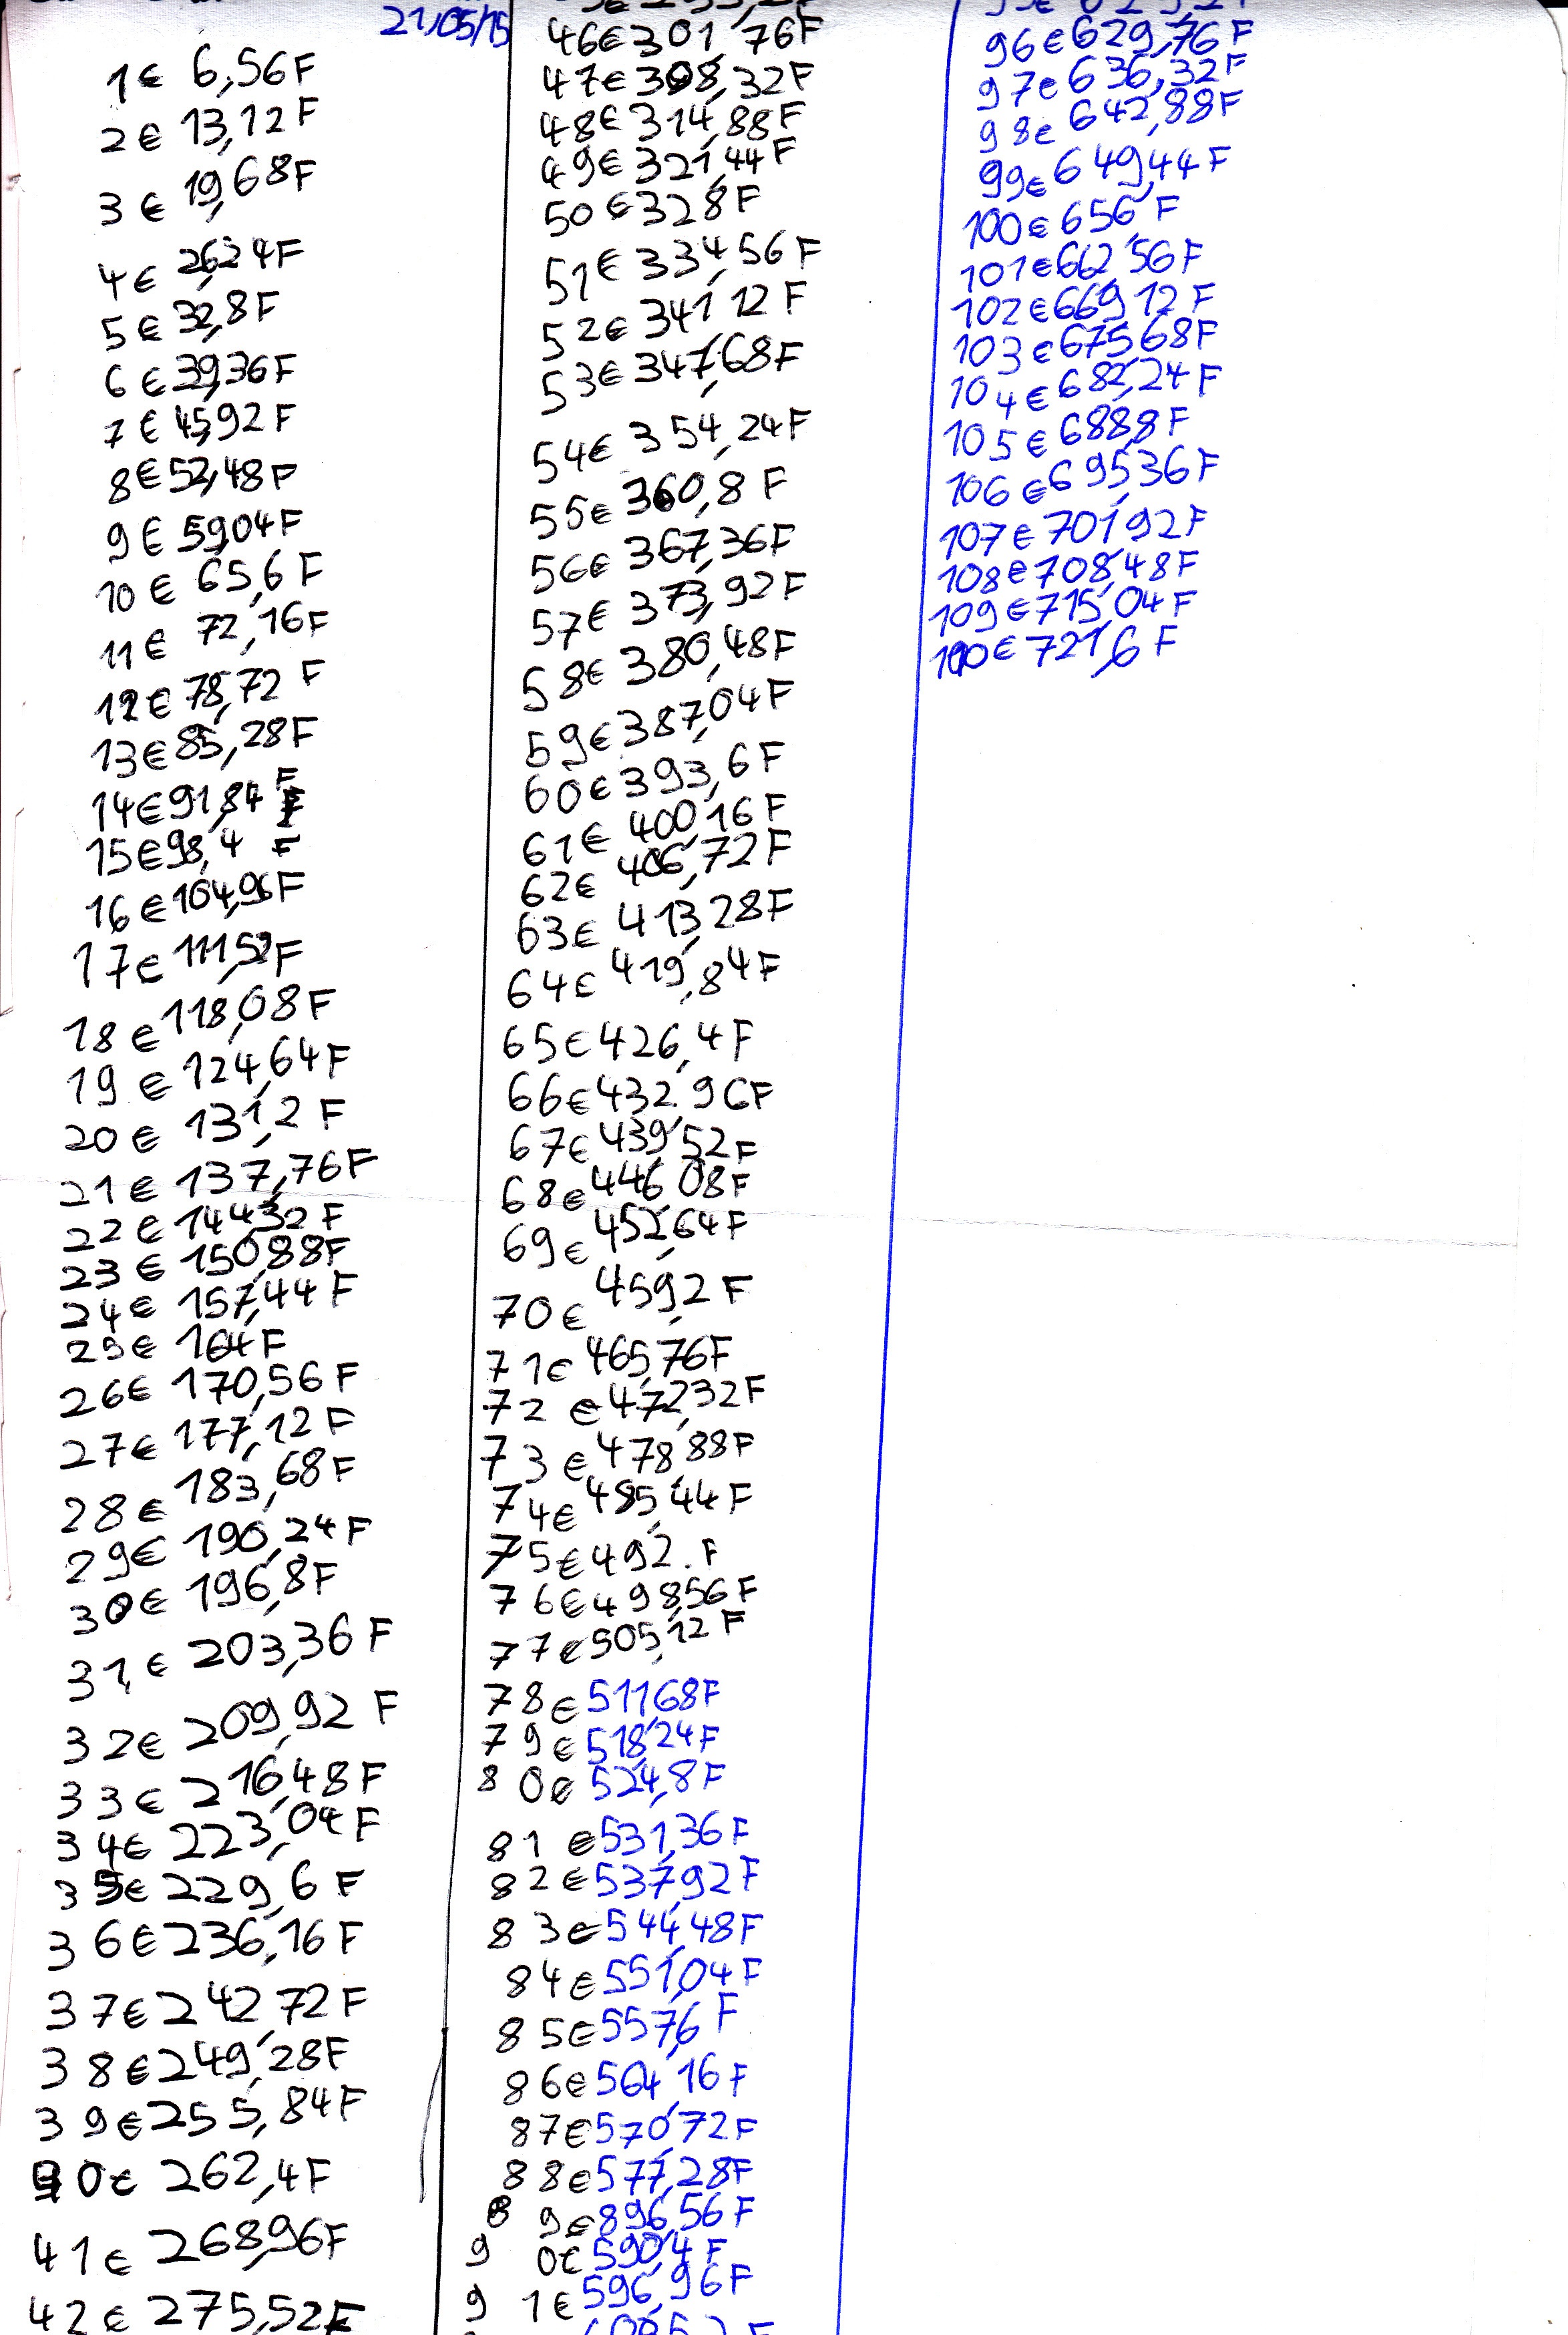 21/05/15
1€ 6,56F
2€ 13,12F
3€ 19,68F
4€ 26,24F
5€ 32,8F
6€ 39,36F
7€ 45,92F
8€ 52,48F
9€ 59,04F
10€ 65,6F
11€ 72,16F
12€ 78,72F
13€ 85,28F
14€ 91,84F
15€ 98,4 F
16€ 104,96F
17€ 111,52F
18€ 118,08F
19€ 124,64F
20€ 131,2F
21€ 137,76F
22€ 144,32F
23€ 150,88F
24€ 157,44F
25€ 164F
26€ 170,56F
27€ 177,12F
28€ 183,68F
29€ 190,24F
30€ 196,8F
31€ 203,36F
32€ 209,92F
33€ 216,48F
34€ 223,04F
35€ 229,6F
36€ 236,16F
37€ 242,72F
38€ 249,28F
39€ 255,84F
40€ 262,4F
41€ 268,96F
42€ 275,52F
46€ 301,76F
47€ 308,32F
48€ 314,88F
49€ 321,44F
50€ 328F
51€ 334,56F
52€ 341,12F
53€ 347,68F
54€ 354,24F
55€ 360,8F
56€ 367,36F
57€ 373,92F
58€ 380,48F
59€ 387,04F
60€ 393,6F
61€ 400,16F
62€ 406,72F
63€ 413,28F
64€ 419,84F
65€ 426,4F
66€ 432.96F
67€ 439,52F
68€ 446,08F
69€ 452,64F
70€ 459,2F
71€ 465,76F
72€ 472,32F
73€ 478,88F
74€ 485,44F
75€ 492.F
76€ 498,56F
77€ 505,12F
78€ 511,68F
79€ 518,24F
80€ 524,8F
81€ 531,36F
82€ 537,92F
83€ 544,48F
84€ 551,04F
85€ 557,6F
86€ 564,16F
87€ 570,72F
88€ 577,28F
89€ 896,56F
90€ 590,4F
91€ 596,96F
96€ 629,76F
97€ 636,32F
98€ 642,88F
99€ 649,44F
100€ 656,F
101€ 662,56F
102€ 669,12F
103€ 675,68F
104€ 682,24F
105€ 688,8F
106€ 695,36F
107€ 701,92F
108€ 708,48F
109€ 715,04F
110€ 721,6F